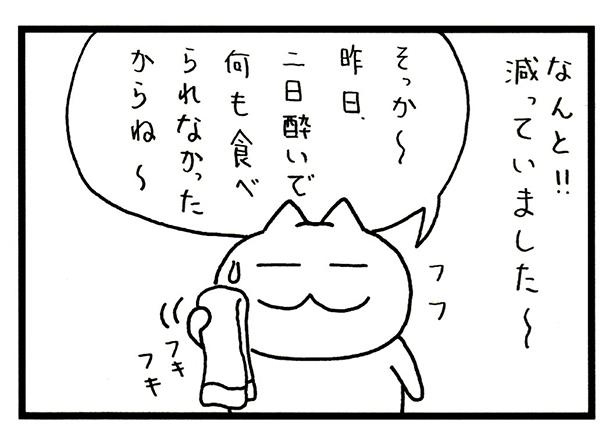 なんと!!
減っていました〜
そっか〜
昨日、
二日酔いで
何も食べ
られなかった
からね〜
フフ
フキ
フキ